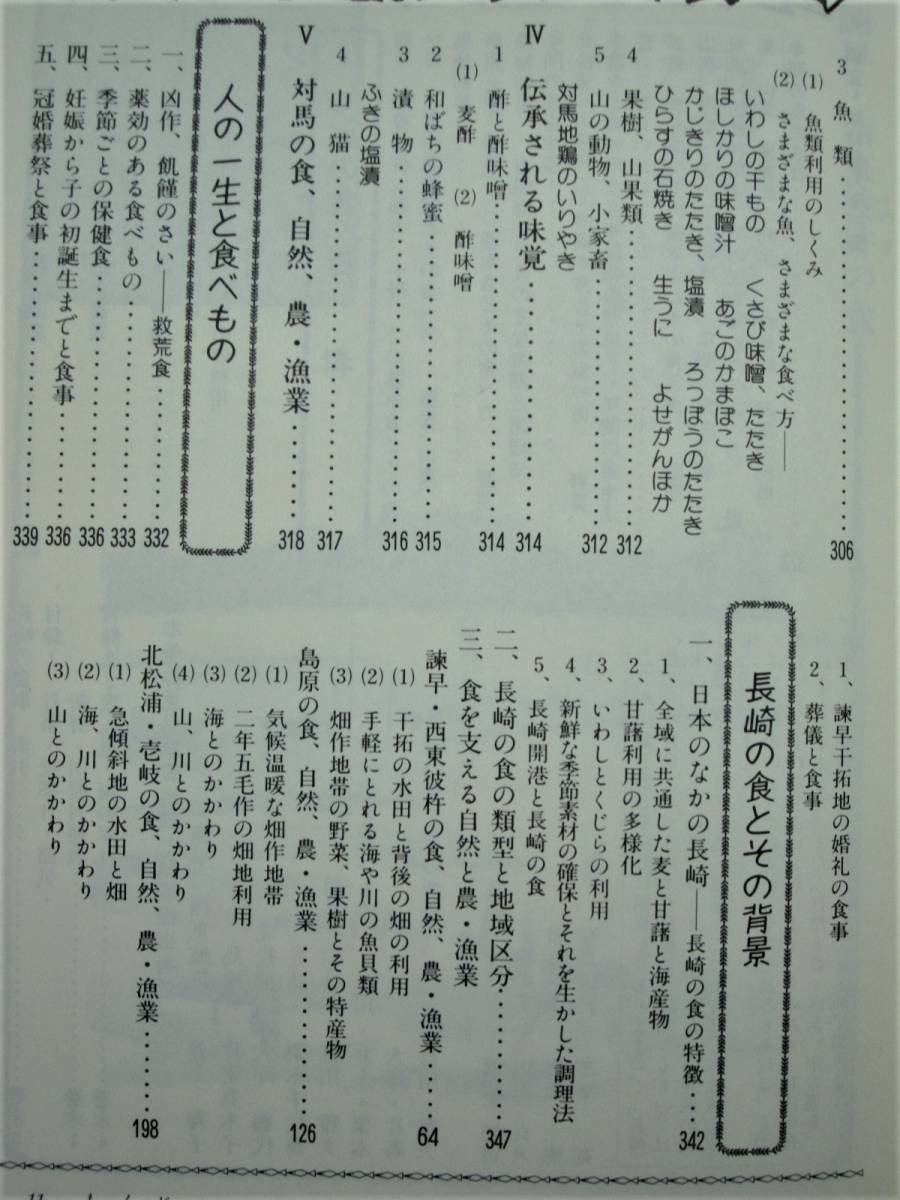 3 魚類 306
(1) 魚類利用のしくみ
(2) さまざまな魚、さまざまな食べ方——
いわしの干もの くさび味噌、たたき
ほしかりの味噌汁 あごのかまぼこ
かじきりのたたき、塩漬 ろっぽうのたたき
ひらすの石焼き 生うに よせがんほか
4 果樹、山果類 312
5 山の動物、小家畜 312
対馬地鶏のいりやき
Ⅳ 伝承される味覚 314
1 酢と酢味噌 314
(1) 麦酢 (2) 酢味噌
2 和ばちの蜂蜜 315
3 漬物 316
ふきの塩漬
4 山猫 317
Ⅴ 対馬の食、自然、農・漁業 318
人の一生と食べもの
一、凶作、飢饉のさい——救荒食 332
二、薬効のある食べもの 333
三、季節ごとの保健食 336
四、妊娠から子の初誕生までと食事 336
五、冠婚葬祭と食事 339
1、諫早干拓地の婚礼の食事
2、葬儀と食事
長崎の食とその背景
一、日本のなかの長崎——長崎の食の特徴 342
1、全域に共通した麦と甘藷と海産物
2、甘藷利用の多様化
3、いわしとくじらの利用
4、新鮮な季節素材の確保とそれを生かした調理法
5、長崎開港と長崎の食
二、長崎の食の類型と地域区分 347
三、食を支える自然と農・漁業
諫早・西東彼杵の食、自然、農・漁業 64
(1) 干拓の水田と背後の畑の利用
(2) 手軽にとれる海や川の魚貝類
(3) 畑作地帯の野菜、果樹とその特産物
島原の食、自然、農・漁業 126
(1) 気候温暖な畑作地帯
(2) 二年五毛作の畑地利用
(3) 海とのかかわり
(4) 山、川とのかかわり
北松浦・壱岐の食、自然、農・漁業 198
(1) 急傾斜地の水田と畑
(2) 海、川とのかかわり
(3) 山とのかかわり